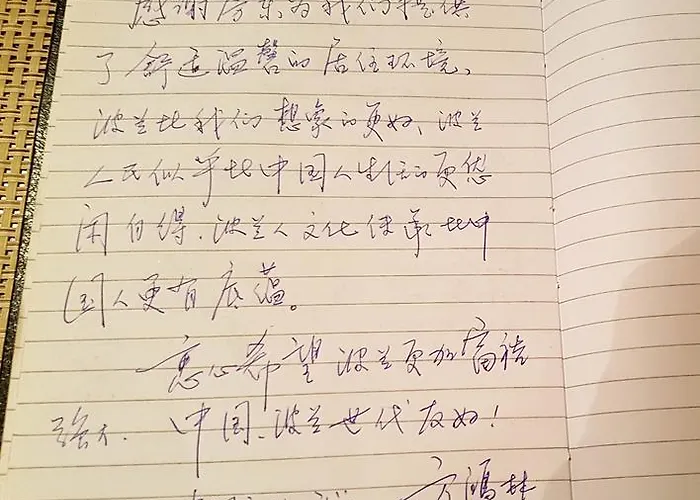 感谢房东为我们提供
了舒适温馨的居住环境、
波兰比我们想象的更好、波兰
人民似乎比中国人生活的更悠
闲自得、波兰人文化传承比中
国人更有底蕴。
衷心希望波兰更加富裕
强大、中国、波兰世代友好！
方鸿林